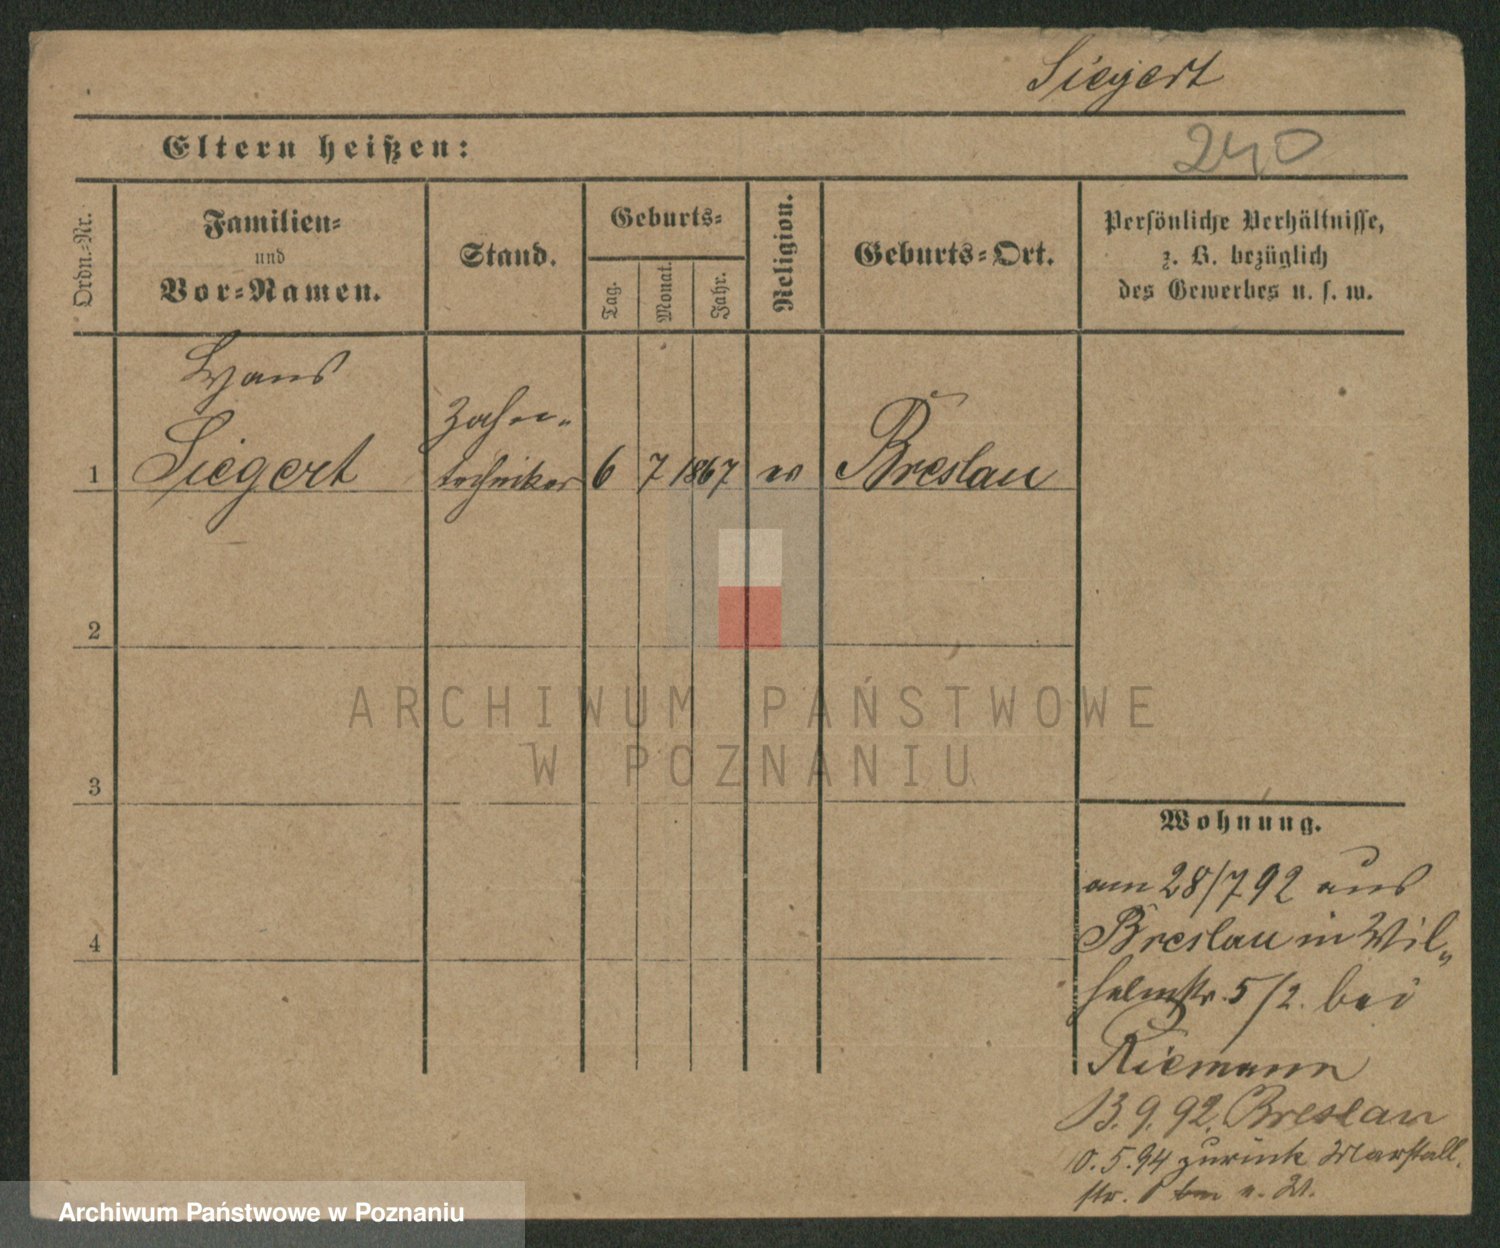 Siegert
Eltern heißen:
240
Ordn.-Nr.
Familien-
und
Vor-Namen.
Stand.
Geburts-
Tag.
Monat.
Jahr.
Religion.
Geburts-Ort.
Persönliche Verhältnisse,
z. B. bezüglich
des Gewerbes u. s. w.
Hans
Zahn-
1 Siegert techniker 6 7 1867 ev Breslau
2
3
4
Wohnung.
am 28/7 92 aus
Breslau in Wil-
helmstr. 5/2. bei
Riemann
13.9.92. Breslau
0.5.94 zurück Marstall
str.
ARCHIWUM PAŃSTWOWE
W POZNANIU
Archiwum Państwowe w Poznaniu